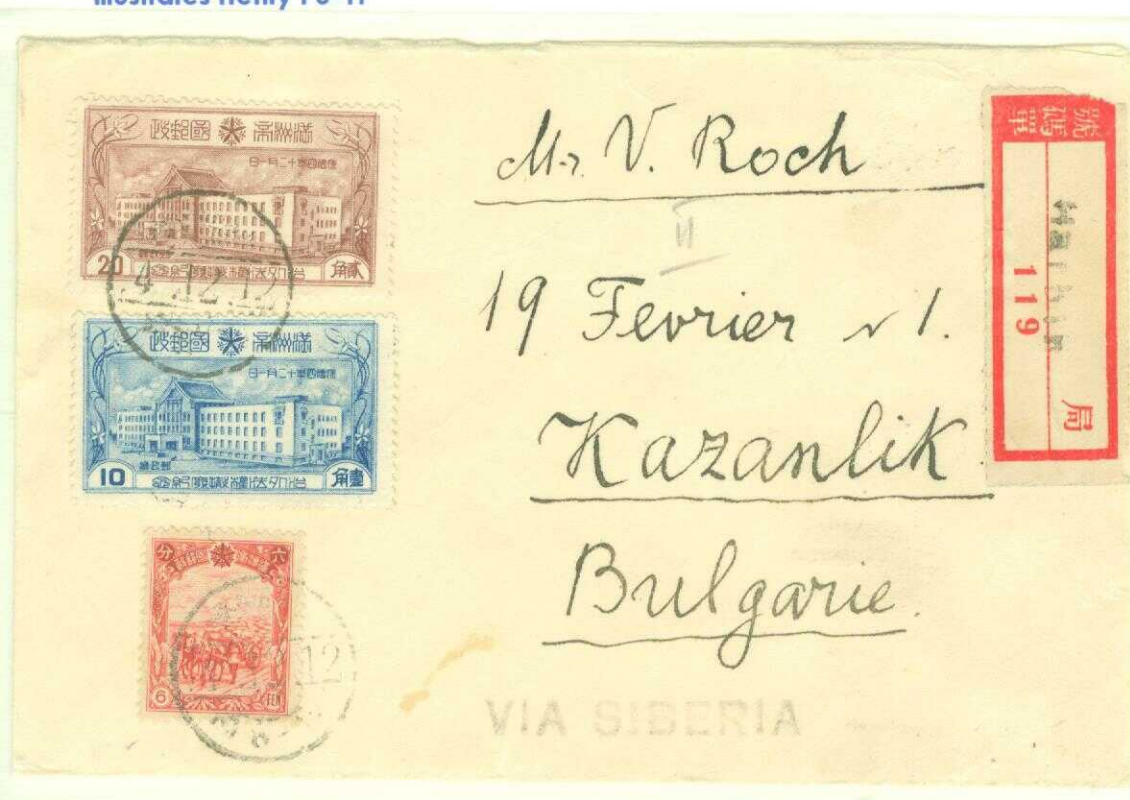 滿洲帝國郵政
康德四年十二月一日
20
治外法權撤廢紀念
貳角
4 12 12
滿洲帝國郵政
康德四年十二月一日
10
治外法權撤廢紀念
壹角
六分
6
12
Mr V. Roch
II
19 Fevrier № 1.
Kazanlik
Bulgarie.
VIA SIBERIA
號碼單
Harbin
119
局